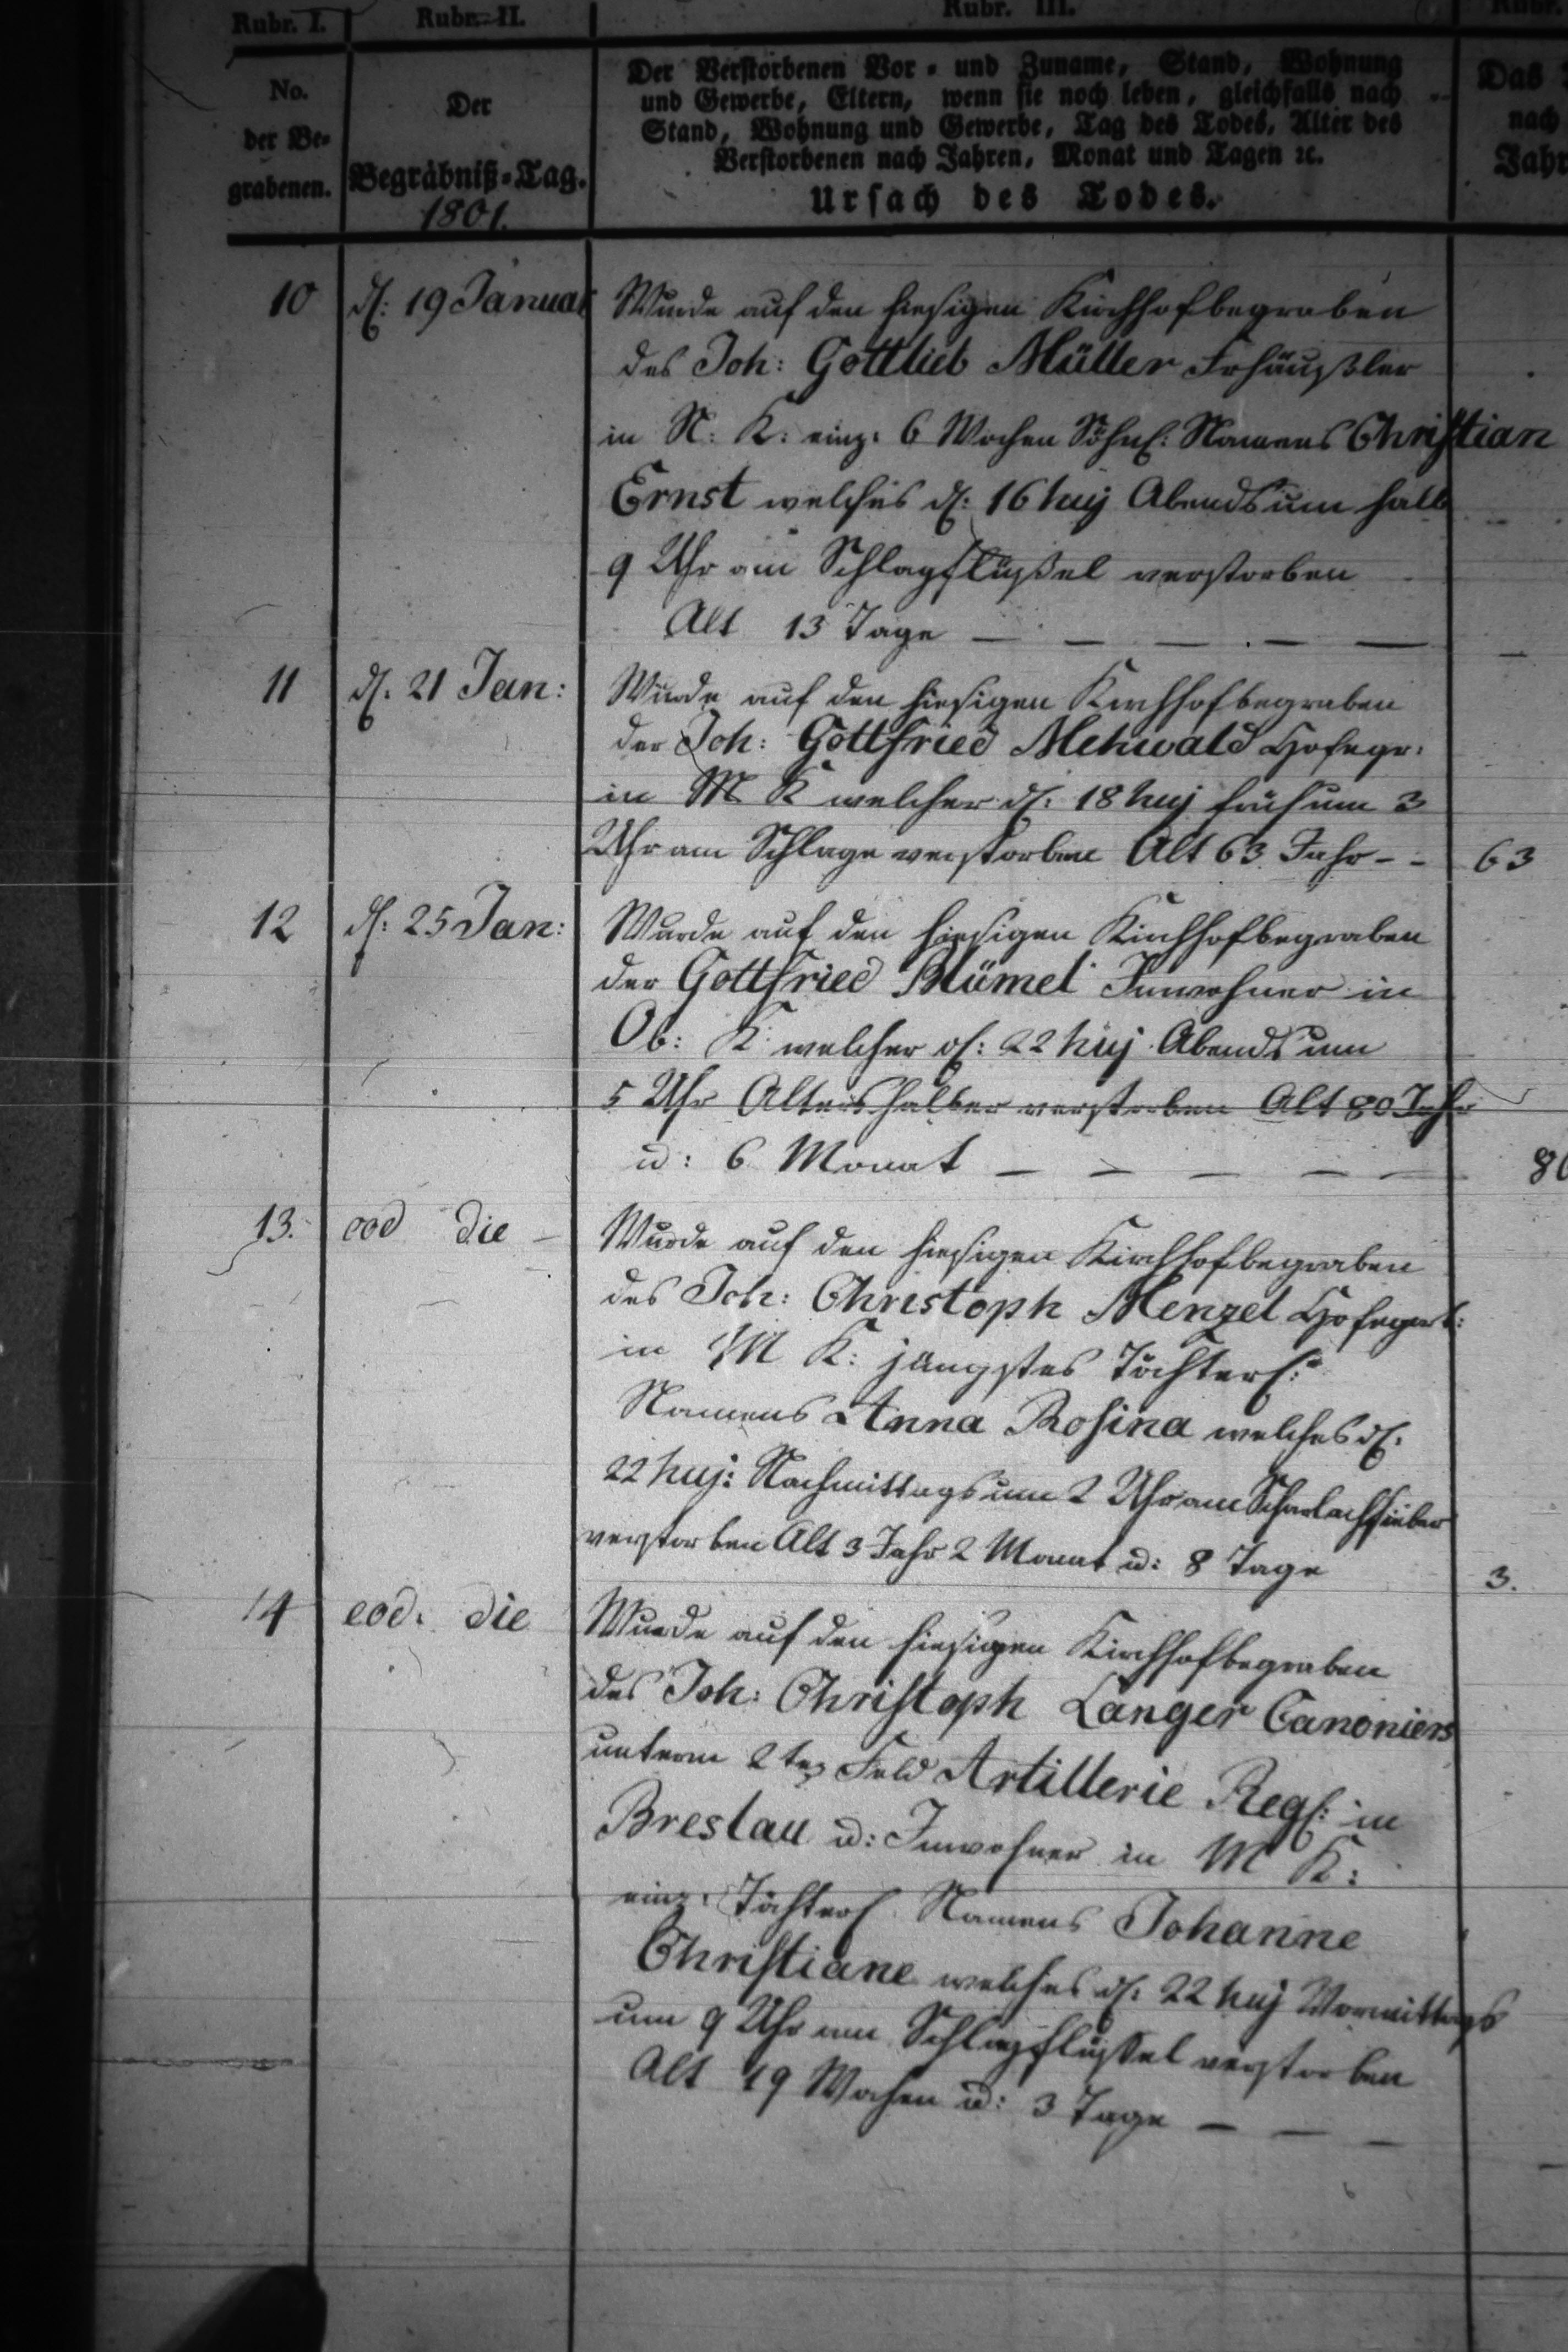 Rubr. I.
Rubr. II.
Rubr. III.
Rubr.
No.
der Be-
grabenen.
Der
Begräbniß-Tag.
1801.
Der Verstorbenen Vor- und Zuname, Stand, Wohnung
und Gewerbe, Eltern, wenn sie noch leben, gleichfalls nach
Stand, Wohnung und Gewerbe, Tag des Todes, Alter des
Verstorbenen nach Jahren, Monat und Tagen ꝛc.
Ursach des Todes.
Das
nach
Jahr
10 d: 19 Januar Wurde auf den hiesigen Kirchhof begraben
des Joh: Gottlieb Müller Frhäußler
in N: K: einz: 6 Wochen Söhnl: Namens Christian
Ernst welches d: 16 huj Abends um halb
9 Uhr am Schlagflüßel verstorben
Alt 13 Tage — — — — —
11 d. 21 Jan: Wurde auf den hiesigen Kirchhof begraben
der Joh: Gottfried Mehwald Hofegr:
in M K welcher d: 18 huj früh um 3
Uhr am Schlage verstorben Alt 63 Jahr - - 63
12 d: 25 Jan: Wurde auf den hiesigen Kirchhof begraben
der Gottfried Blümel Innwohner in
Ob: K: welcher d: 22 huj Abends um
5 Uhr Alters halber verstorben Alt 80 Jahr
u: 6 Monat — — — — — 80
13. eod die — Wurde auf den hiesigen Kirchhof begraben
des Joh: Christoph Menzel Hofegert:
in M K: jüngstes Töchterl:
Namens Anna Rosina welches d:
22 huj: Nachmittags um 2 Uhr am Scharlachfieber
verstorben Alt 3 Jahr 2 Monat u: 8 Tage 3.
14 eod: die Wurde auf den hiesigen Kirchhof begraben
des Joh: Christoph Langer Canoniers
unterm 2ten Feld Artillerie Reg: in
Breslau u: Innwohner in M K:
einz: Töchterl Namens Johanne
Christiane welches d: 22 huj Vormittags
um 9 Uhr am Schlagflüßel verstorben
Alt 19 Wochen u: 3 Tage — — —